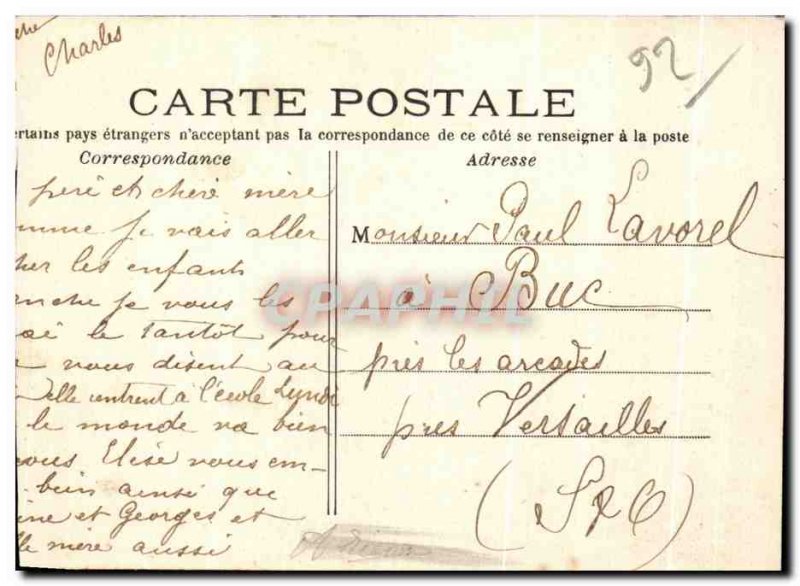 che
Charles
92/
CARTE POSTALE
ertains pays étrangers n'acceptant pas la correspondance de ce côté se renseigner à la poste
Correspondance
Adresse
père et chère mère
mme je vais aller
her les enfants
anche je vous les
le tantôt pour
vous disent au
elle rentrent à l'école Lundi
le monde va bien
vous Elise vous em-
bien ainsi que
ine et Georges et
lle mère aussi
Monsieur Paul Lavorel
à Buc
près les arcades
près Versailles
(S & O)
CPAPHIL